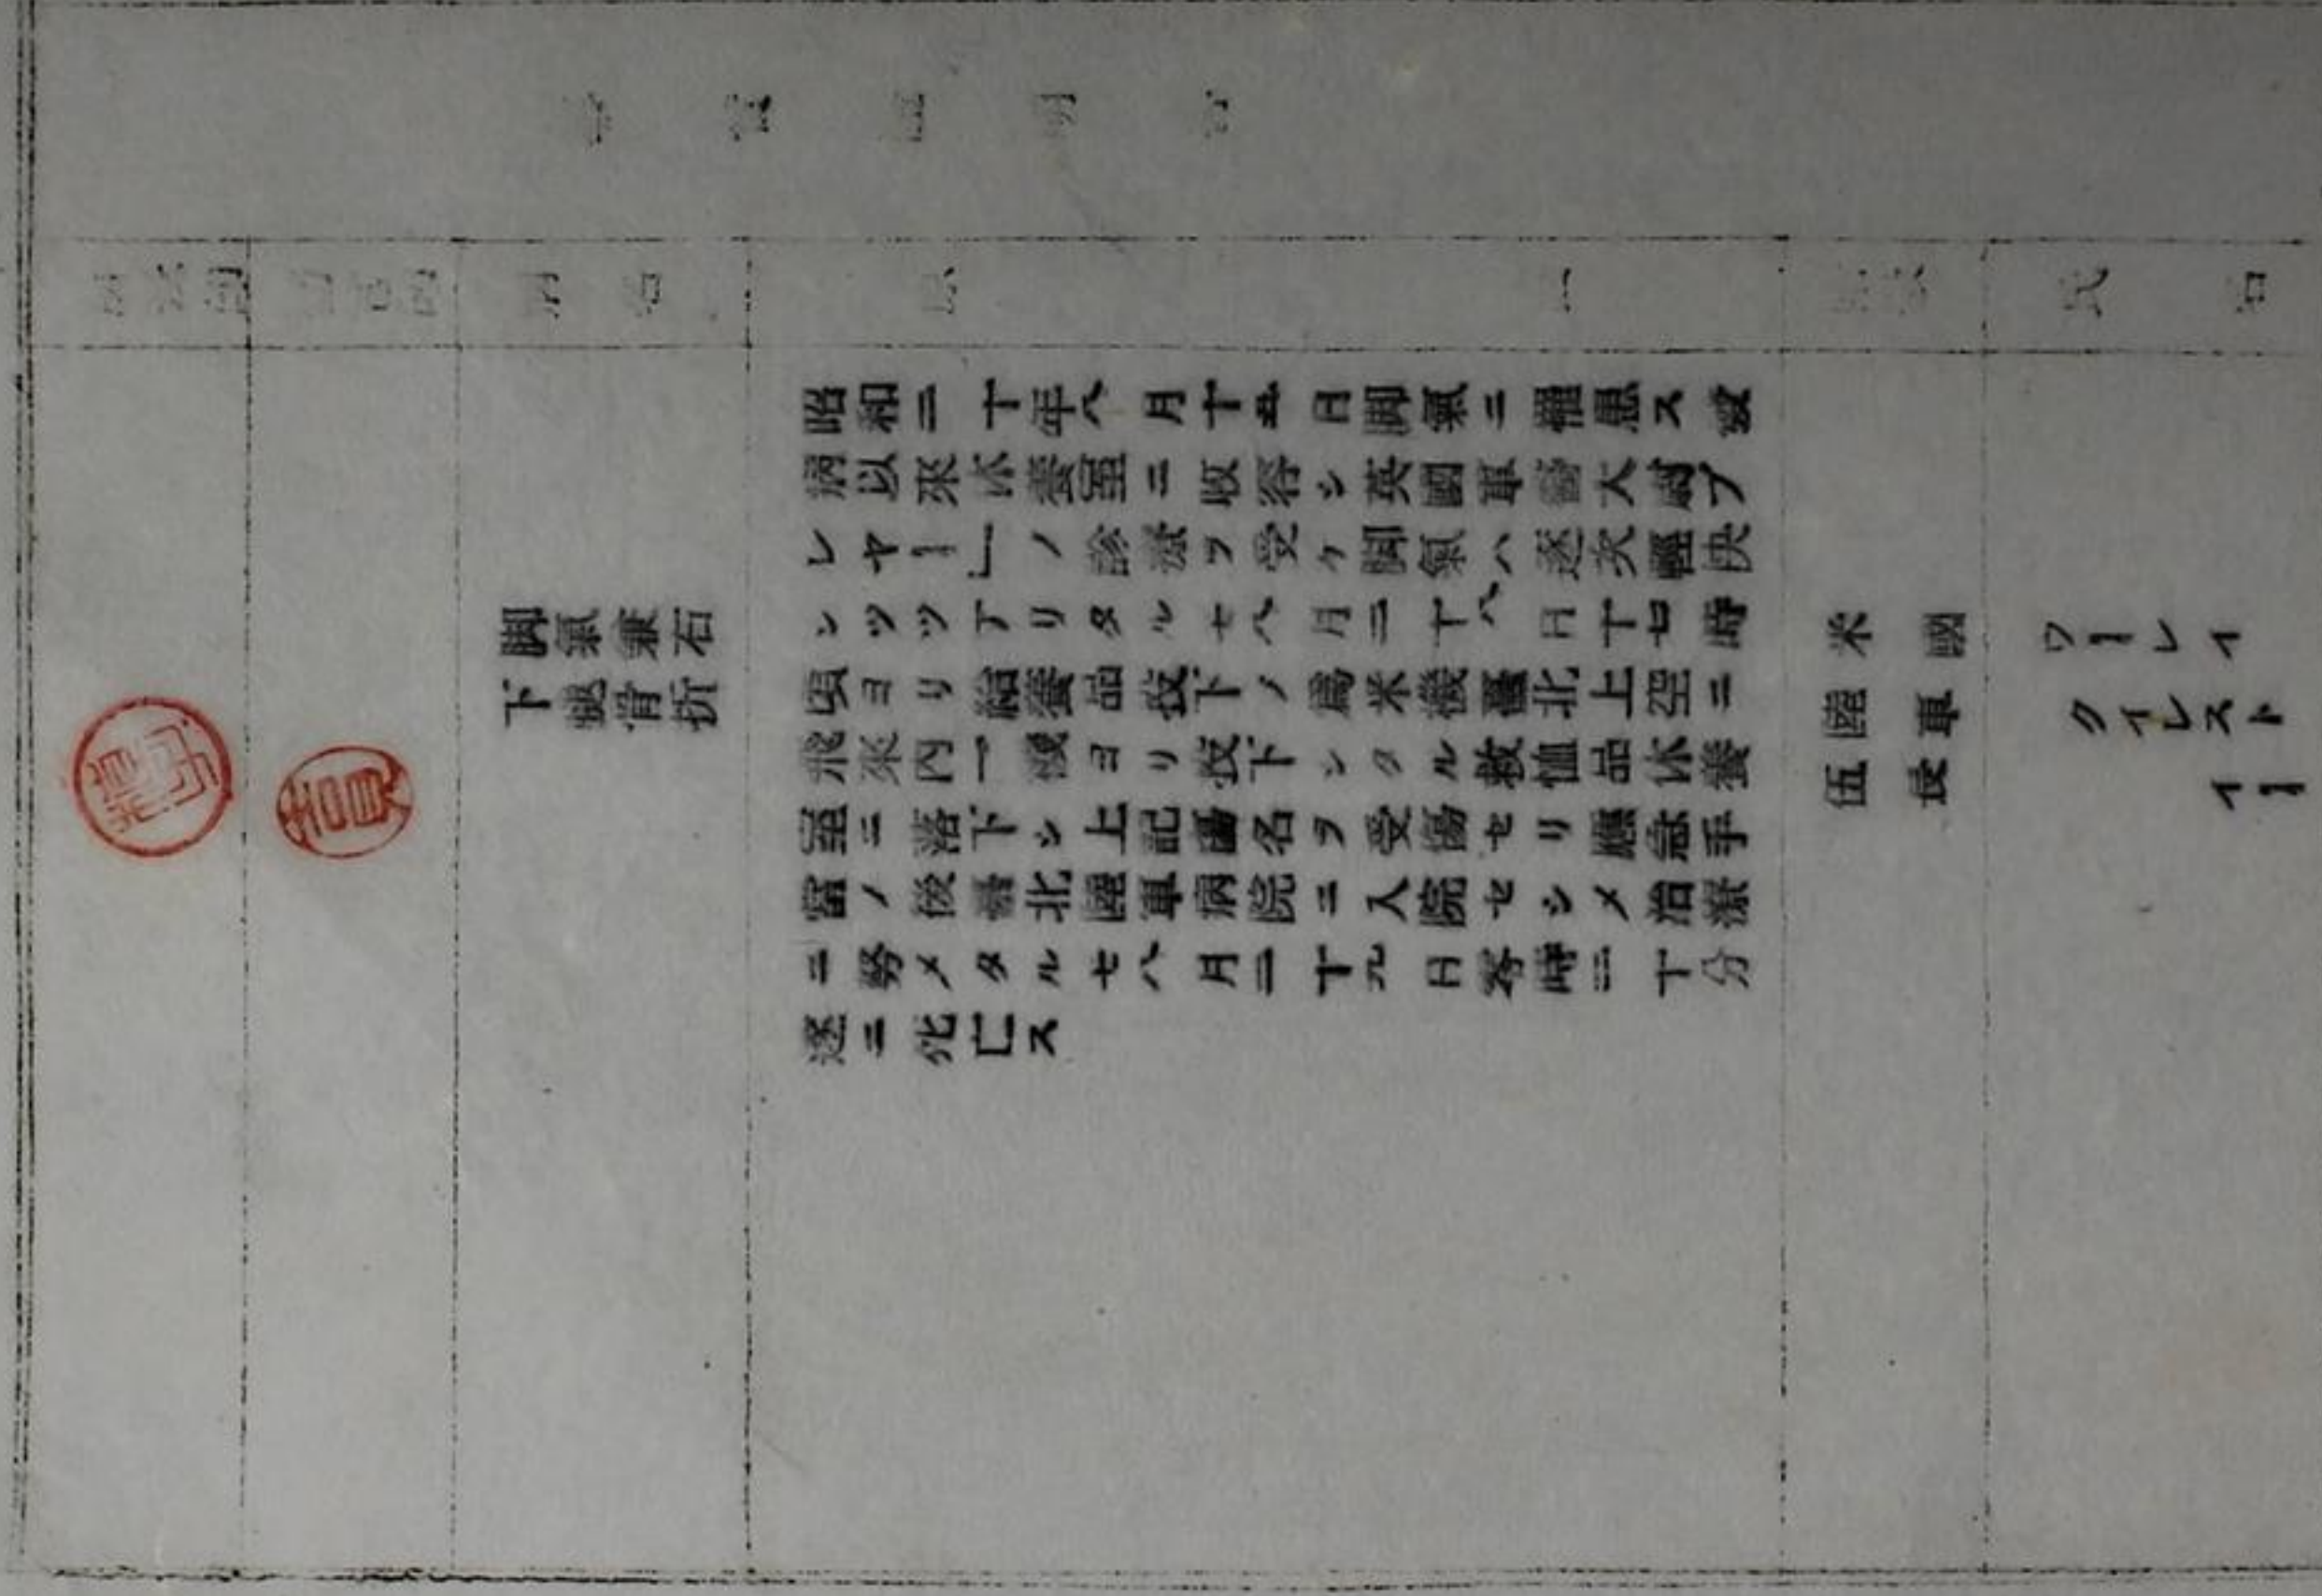 事實證明書
病名
脚氣兼右
下腿骨折
昭和二十年八月十五日脚氣ニ罹患ス發
病以來休養室ニ收容シ英國軍醫大尉ブ
レヤー」ノ診療ヲ受ケ脚氣ハ逐次輕快
シツツアリタルモ八月二十八日十七時
頃ヨリ給養品投下ノ爲米機臺北上空ニ
飛來內一機ヨリ投下シタル救恤品休養
室ニ落下シ上記傷名ヲ受傷セリ應急手
當ノ後臺北陸軍病院ニ入院セシメ治療
ニ努メタルモ八月二十九日零時二十分
遂ニ死亡ス
米國
陸軍
伍長
氏名
ワーレイ
クイレスト
イー